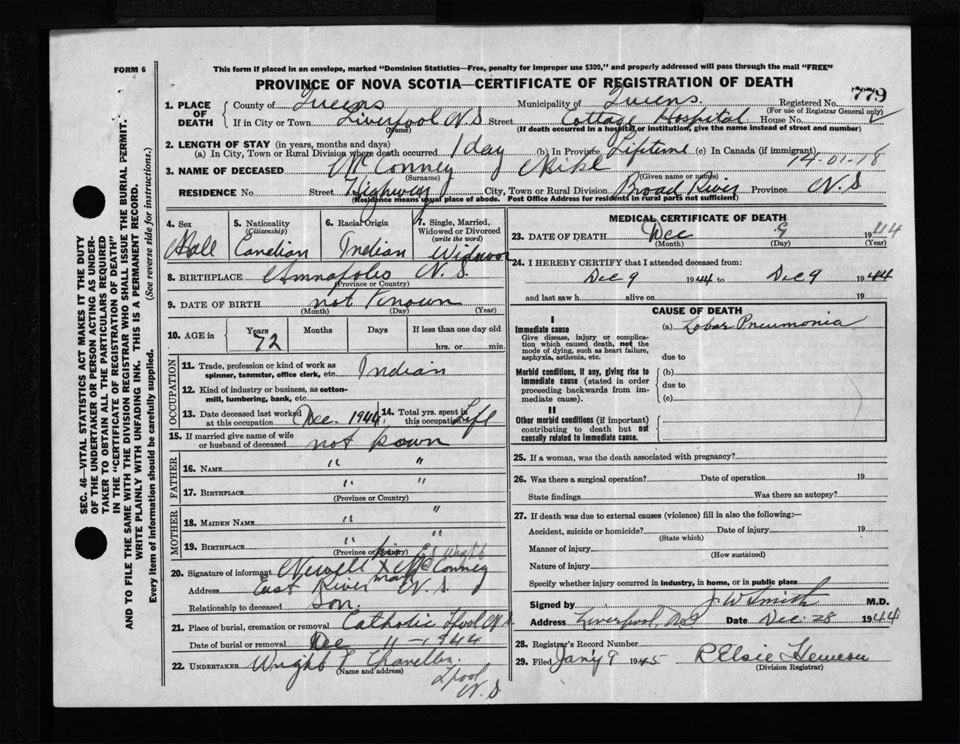 FORM 6
This form if placed in an envelope, marked "Dominion Statistics—Free, penalty for improper use $300," and properly addressed will pass through the mail "FREE"
PROVINCE OF NOVA SCOTIA—CERTIFICATE OF REGISTRATION OF DEATH
779
1. PLACE OF DEATH County of Queens Municipality of Queens Registered No.
(For use of Registrar General only)
If in City or Town Liverpool N.S Street Cottage Hospital House No.
(Name) (If death occurred in a hospital or institution, give the name instead of street and number)
2. LENGTH OF STAY (in years, months and days)
(a) In City, Town or Rural Division where death occurred 1 day (b) In Province Lifetime (c) In Canada (if immigrant)
14-01-78
3. NAME OF DECEASED McConney Mike
(Surname) (Given name or names)
RESIDENCE No. Street Highway City, Town or Rural Division Broad River Province N.S
(Residence means usual place of abode. Post Office Address for residents in rural parts not sufficient)
4. Sex 5. Nationality (Citizenship) 6. Racial Origin 7. Single, Married, Widowed or Divorced (write the word)
Canadian Indian
8. BIRTHPLACE Annapolis N.S.
(Province or Country)
9. DATE OF BIRTH not Known
(Month) (Day) (Year)
10. AGE in Years Months Days If less than one day old
72 hrs. or min.
OCCUPATION
11. Trade, profession or kind of work as spinner, teamster, office clerk, etc. Indian
12. Kind of industry or business, as cotton-mill, lumbering, bank, etc.
13. Date deceased last worked at this occupation Dec. 1944 14. Total yrs. spent in this occupation Life
15. If married give name of wife or husband of deceased not
FATHER
16. NAME " "
17. BIRTHPLACE " "
(Province or Country)
MOTHER
18. MAIDEN NAME " "
19. BIRTHPLACE " "
(Province or Country)
20. Signature of informant Newell his X mark McConney
Address East River N.S.
Relationship to deceased Son.
21. Place of burial, cremation or removal Catholic Lpool N.S.
Date of burial or removal Dec 11-1944
22. UNDERTAKER Wright
(Name and address)
Lpool
N.S
MEDICAL CERTIFICATE OF DEATH
23. DATE OF DEATH Dec 9 1944
(Month) (Day) (Year)
24. I HEREBY CERTIFY that I attended deceased from:
Dec 9 1944 to Dec 9 1944
and last saw h alive on 19
CAUSE OF DEATH
I
Immediate cause (a) Lobar Pneumonia
Give disease, injury or complication which caused death, not the mode of dying, such as heart failure, asphyxia, asthenia, etc.
due to
Morbid conditions, if any, giving rise to immediate cause (stated in order proceeding backwards from immediate cause).
(b)
due to
(c)
II
Other morbid conditions (if important) contributing to death but not causally related to immediate cause.
25. If a woman, was the death associated with pregnancy?
26. Was there a surgical operation? Date of operation 19
State findings Was there an autopsy?
27. If death was due to external causes (violence) fill in also the following:—
Accident, suicide or homicide? Date of injury 19
(State which)
Manner of injury
(How sustained)
Nature of injury
Specify whether injury occurred in industry, in home, or in public place
Signed by J W Smith M.D.
Address Liverpool, N.S Date Dec. 28 1944
28. Registrar's Record Number
29. Filed Jan'y 9 1945
(Division Registrar)
SEC. 46—VITAL STATISTICS ACT MAKES IT THE DUTY
OF THE UNDERTAKER OR PERSON ACTING AS UNDER-
TAKER TO OBTAIN ALL THE PARTICULARS REQUIRED
IN THE "CERTIFICATE OF REGISTRATION OF DEATH"
AND TO FILE THE SAME WITH THE DIVISION REGISTRAR WHO SHALL ISSUE THE BURIAL PERMIT.
WRITE PLAINLY WITH UNFADING INK. THIS IS A PERMANENT RECORD.
Every item of information should be carefully supplied. (See reverse side for instructions.)